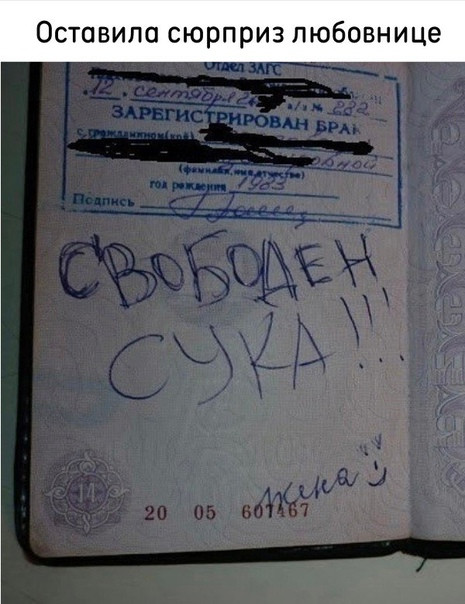 Оставила сюрприз любовнице
Отдел ЗАГС
12. сентября
а/з № 232
ЗАРЕГИСТРИРОВАН БРАК
с гражданином(кой)
(фамилия, имя, отчество)
год рождения 1983
Подпись
СВОБОДЕН
СУКА!!!
жена
14
20 05 601467